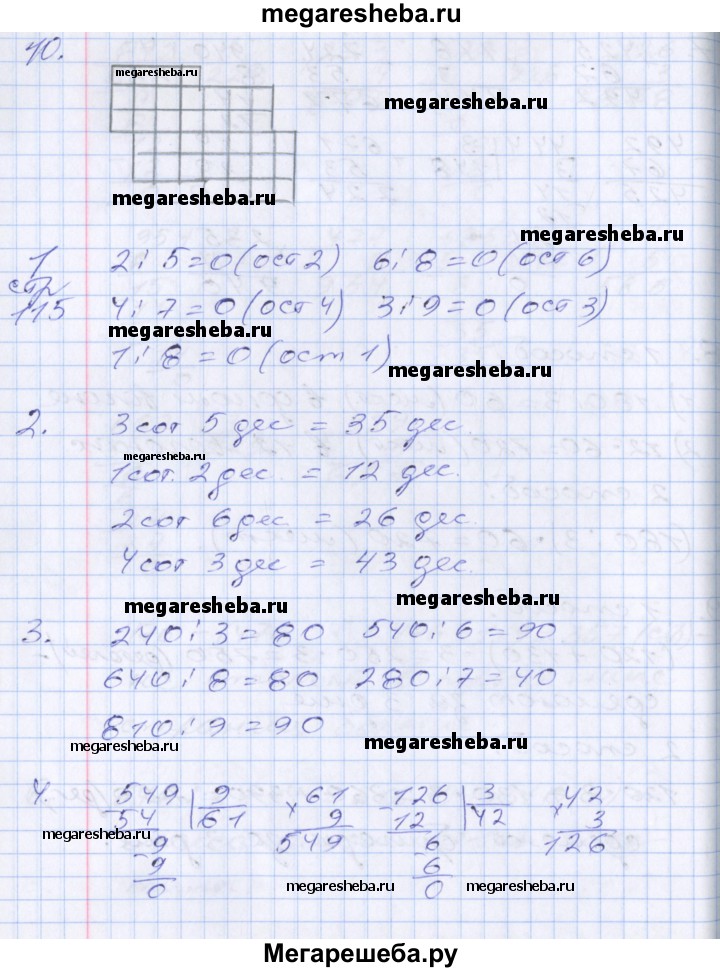 megaresheba.ru
10.
megaresheba.ru
megaresheba.ru
megaresheba.ru
megaresheba.ru
1 2 : 5 = 0 (ост 2) 6 : 8 = 0 (ост 6)
стр
115 4 : 7 = 0 (ост 4) 3 : 9 = 0 (ост 3)
megaresheba.ru
1 : 8 = 0 (ост 1)
megaresheba.ru
2. 3 сот 5 дес = 35 дес.
megaresheba.ru
1 сот. 2 дес = 12 дес.
2 сот 6 дес = 26 дес.
4 сот 3 дес = 43 дес.
megaresheba.ru megaresheba.ru
3. 240 : 3 = 80 540 : 6 = 90
640 : 8 = 80 280 : 7 = 40
810 : 9 = 90
megaresheba.ru megaresheba.ru
4. 549 | 9 × 61 126 | 3 × 42
- 54 61 9 - 12 42 3
megaresheba.ru
9 549 6 126
9 6
0 0
megaresheba.ru megaresheba.ru
Мегарешеба.ру